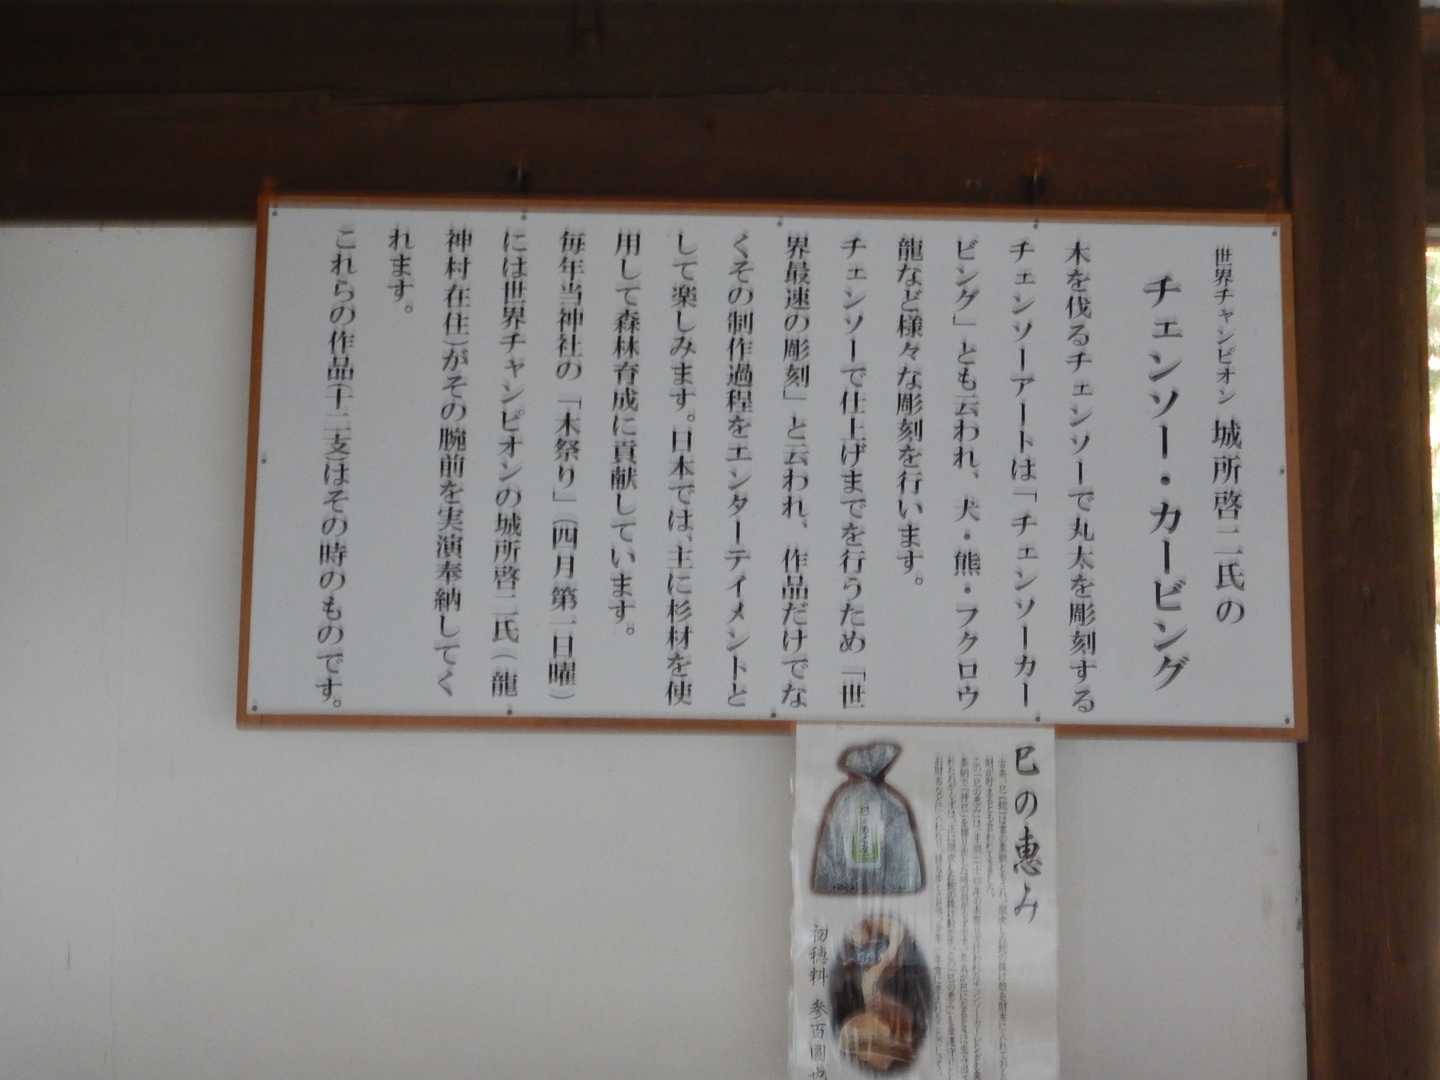 世界チャンピオン 城所啓二氏の
チェンソー・カービング
木を伐るチェンソーで丸太を彫刻する
チェンソーアートは「チェンソーカー
ビング」とも云われ、犬・熊・フクロウ
龍など様々な彫刻を行います。
チェンソーで仕上げまでを行うため「世
界最速の彫刻」と云われ、作品だけでな
くその制作過程をエンターテイメントと
して楽しみます。日本では、主に杉材を使
用して森林育成に貢献しています。
毎年当神社の「木祭り」（四月第一日曜）
には世界チャンピオンの城所啓二氏（龍
神村在住）がその腕前を実演奉納してく
れます。
これらの作品（十二支）はその時のものです。
巳の恵み
初穂料 参百圓也